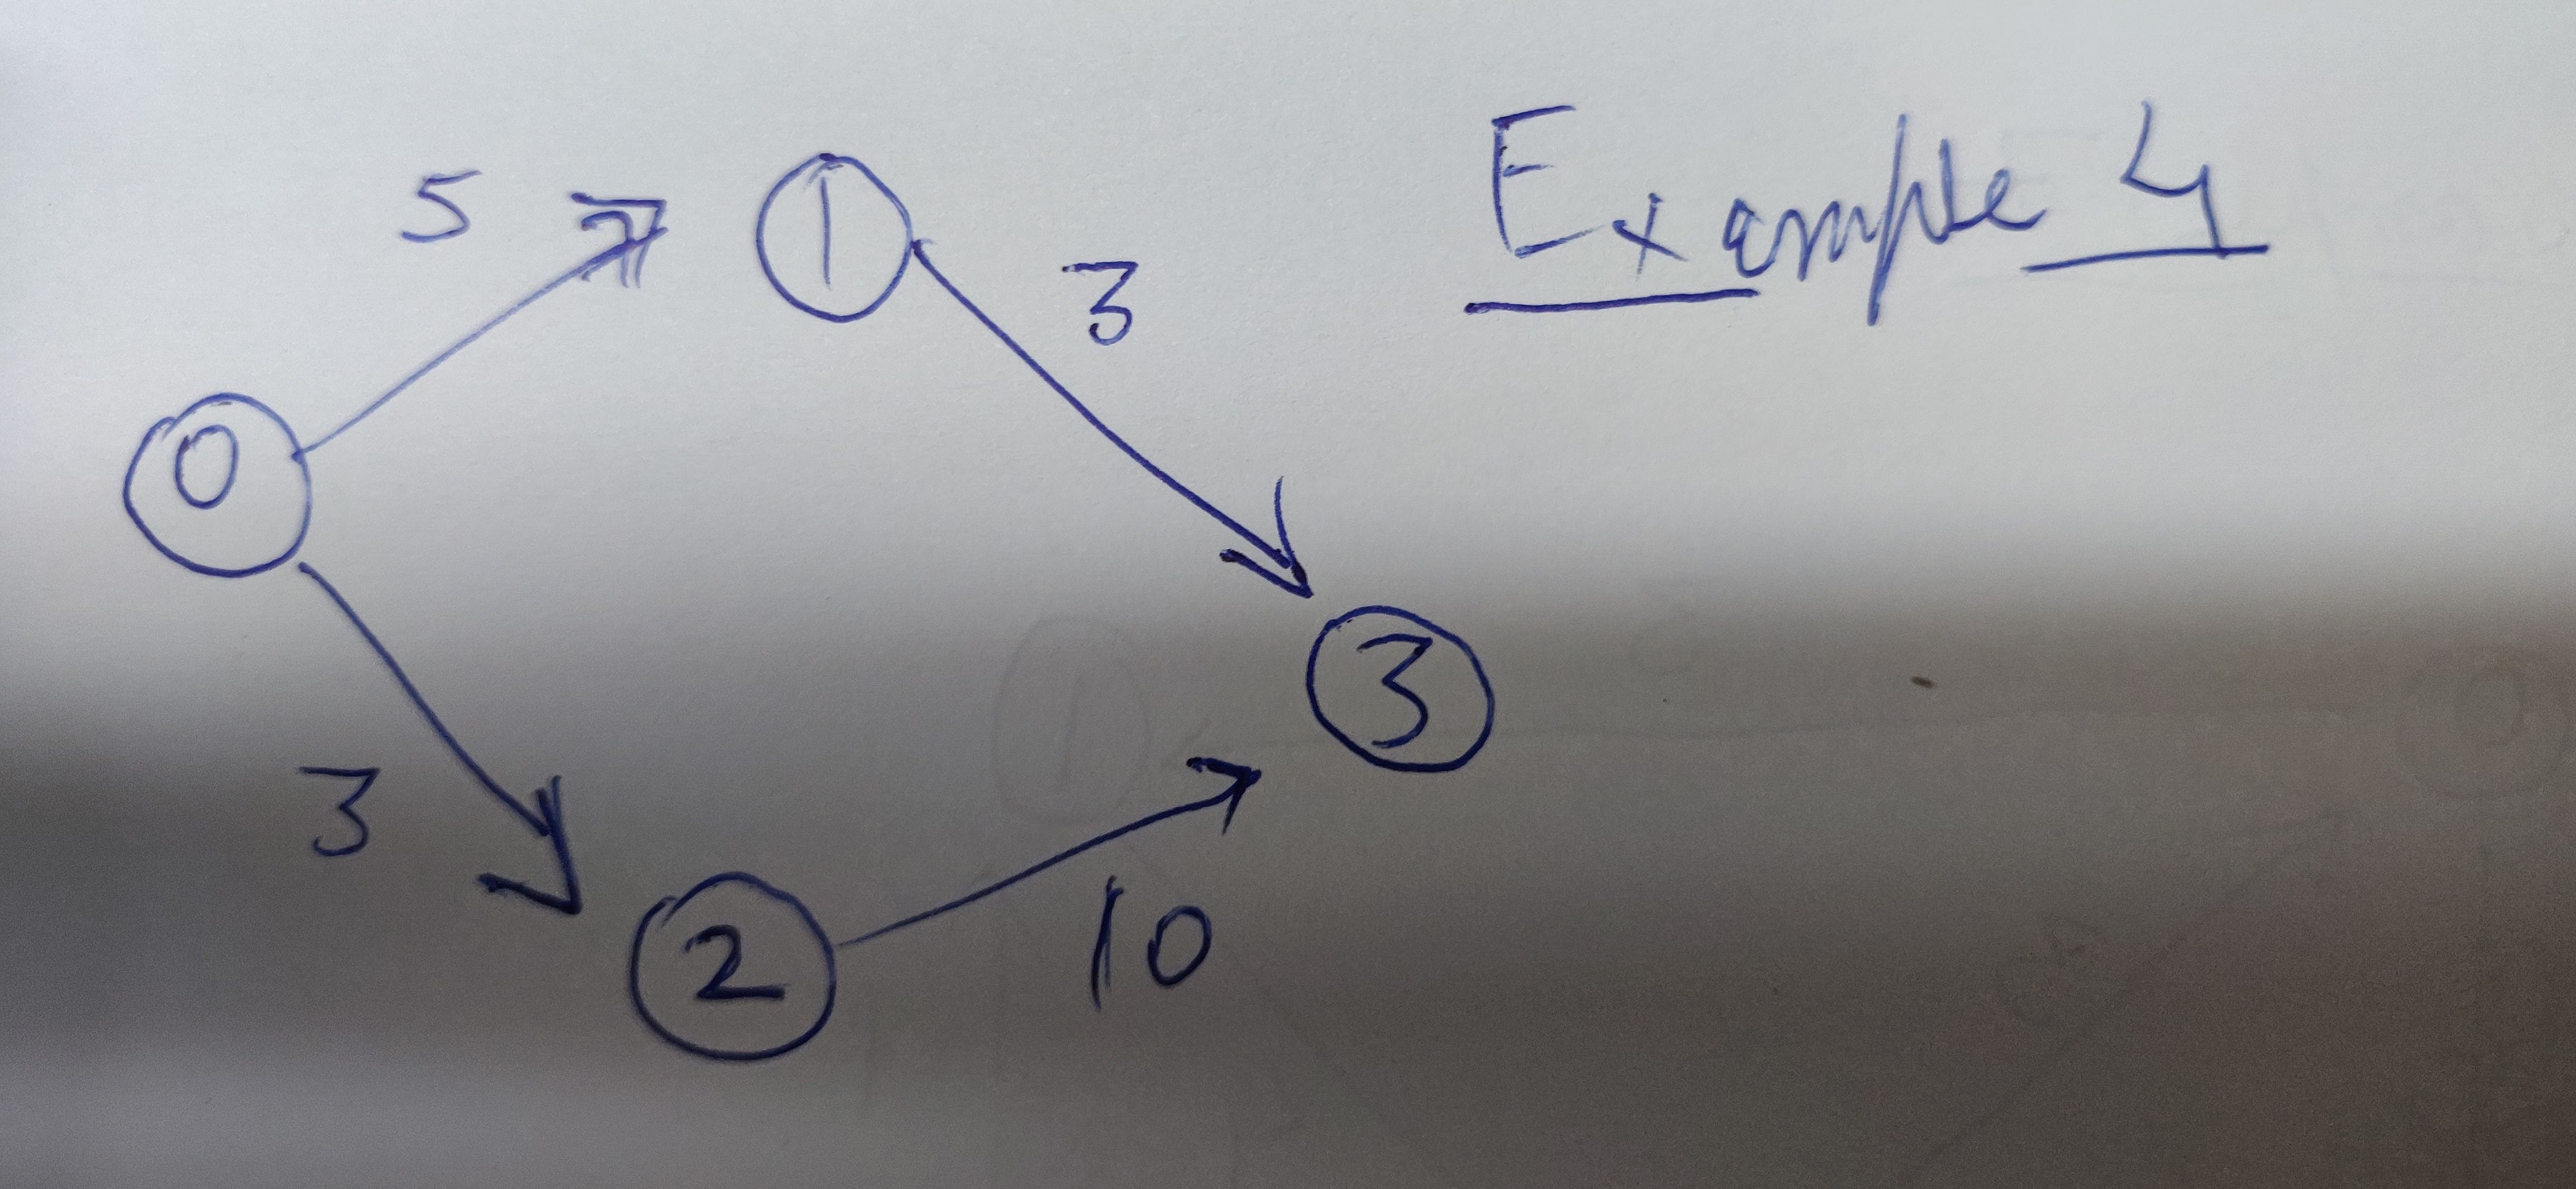 Example 4
5
1
3
0
3
3
2
10